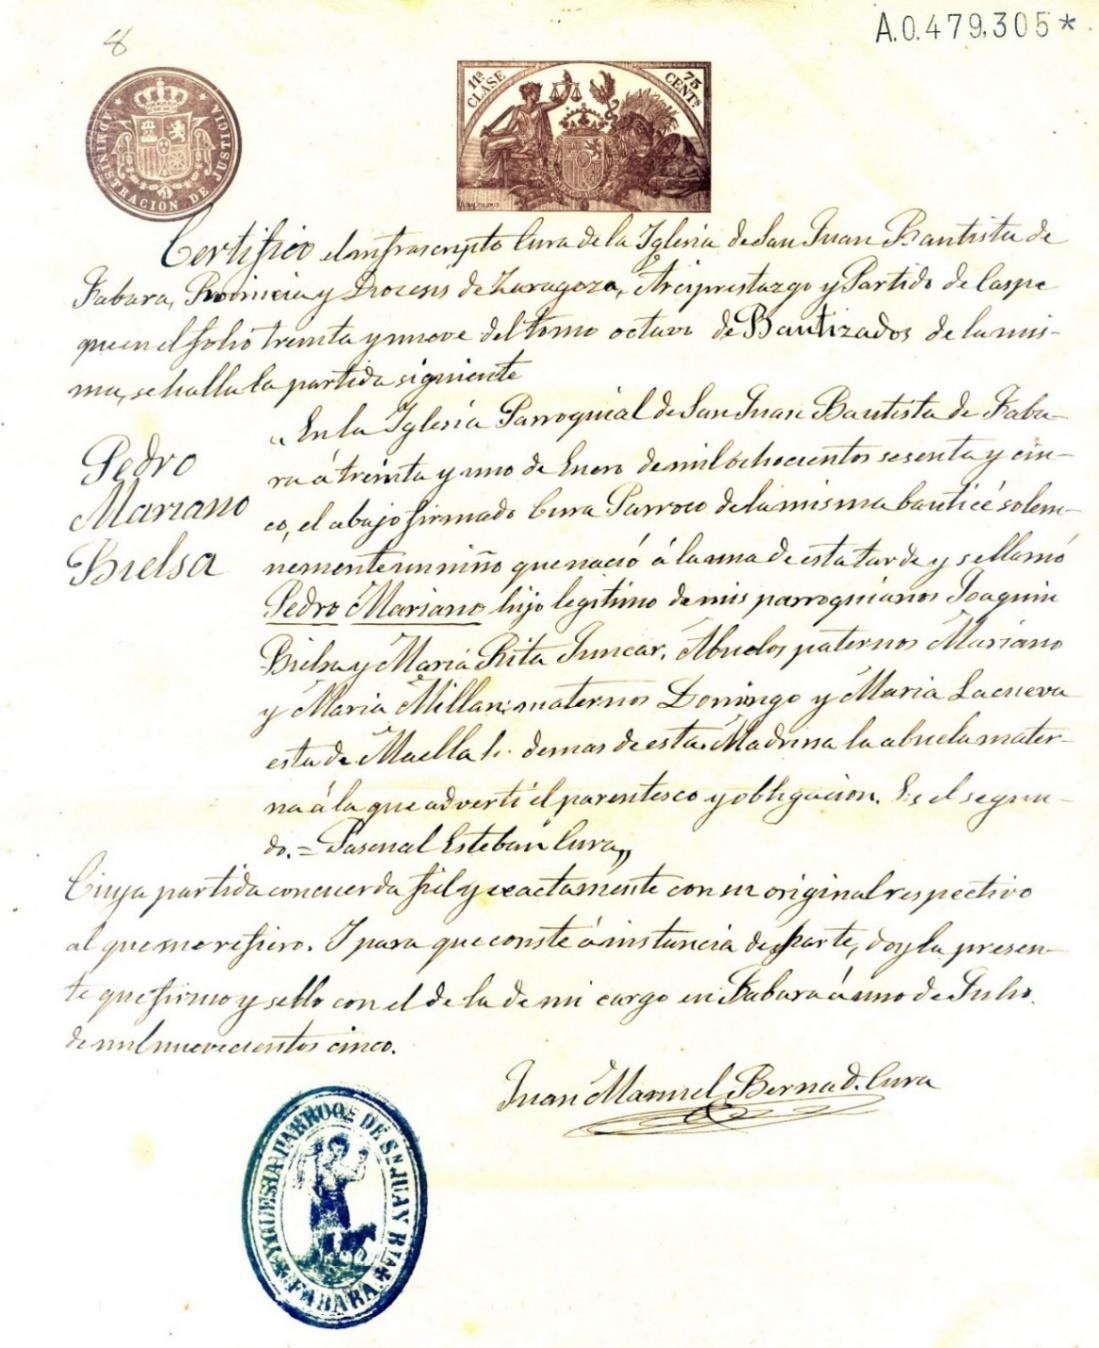 8
A.0.479,305*
ADMINISTRACIÓN DE JUSTICIA
11ª CLASE
75 CENTS
Certifico el infrascripto Cura de la Yglesia de San Juan Bautista de
Fabara, Provincia y Diocesis de Zaragoza, Arciprestazgo y Partido de Caspe
que en el folio treinta y nueve del tomo octavo de Bautizados de la mis-
ma, se halla la partida siguiente
Pedro
Mariano
Bielsa
"En la Yglesia Parroquial de San Juan Bautista de Faba-
ra á treinta y uno de Enero de mil ochocientos sesenta y cin-
co, el abajo firmado Cura Parroco de la misma bauticé solem-
nemente un niño que nació á la una de esta tarde y se llamó
Pedro Mariano hijo legitimo de mis parroquianos Joaquin
Bielsa y Maria Rita Juncar, Abuelos paternos Mariano
y Maria Millan; maternos Domingo y Maria Lacueva
esta de Maella l. demas de esta. Madrina la abuela mater-
na á la que advertí el parentesco y obligacion. Es el segun-
do. = Pascual Esteban Cura„
Cuya partida concuerda fiel y exactamente con su original respectivo
al que me refiero. Y para que conste á instancia de parte, doy la presen-
te que firmo y sello con el de la de mi cargo en Fabara á uno de Julio
de mil nuevecientos cinco.
Juan Manuel Bernad. Cura
YGLESIA PARROQe DE Sn JUAN BTA
FABARA